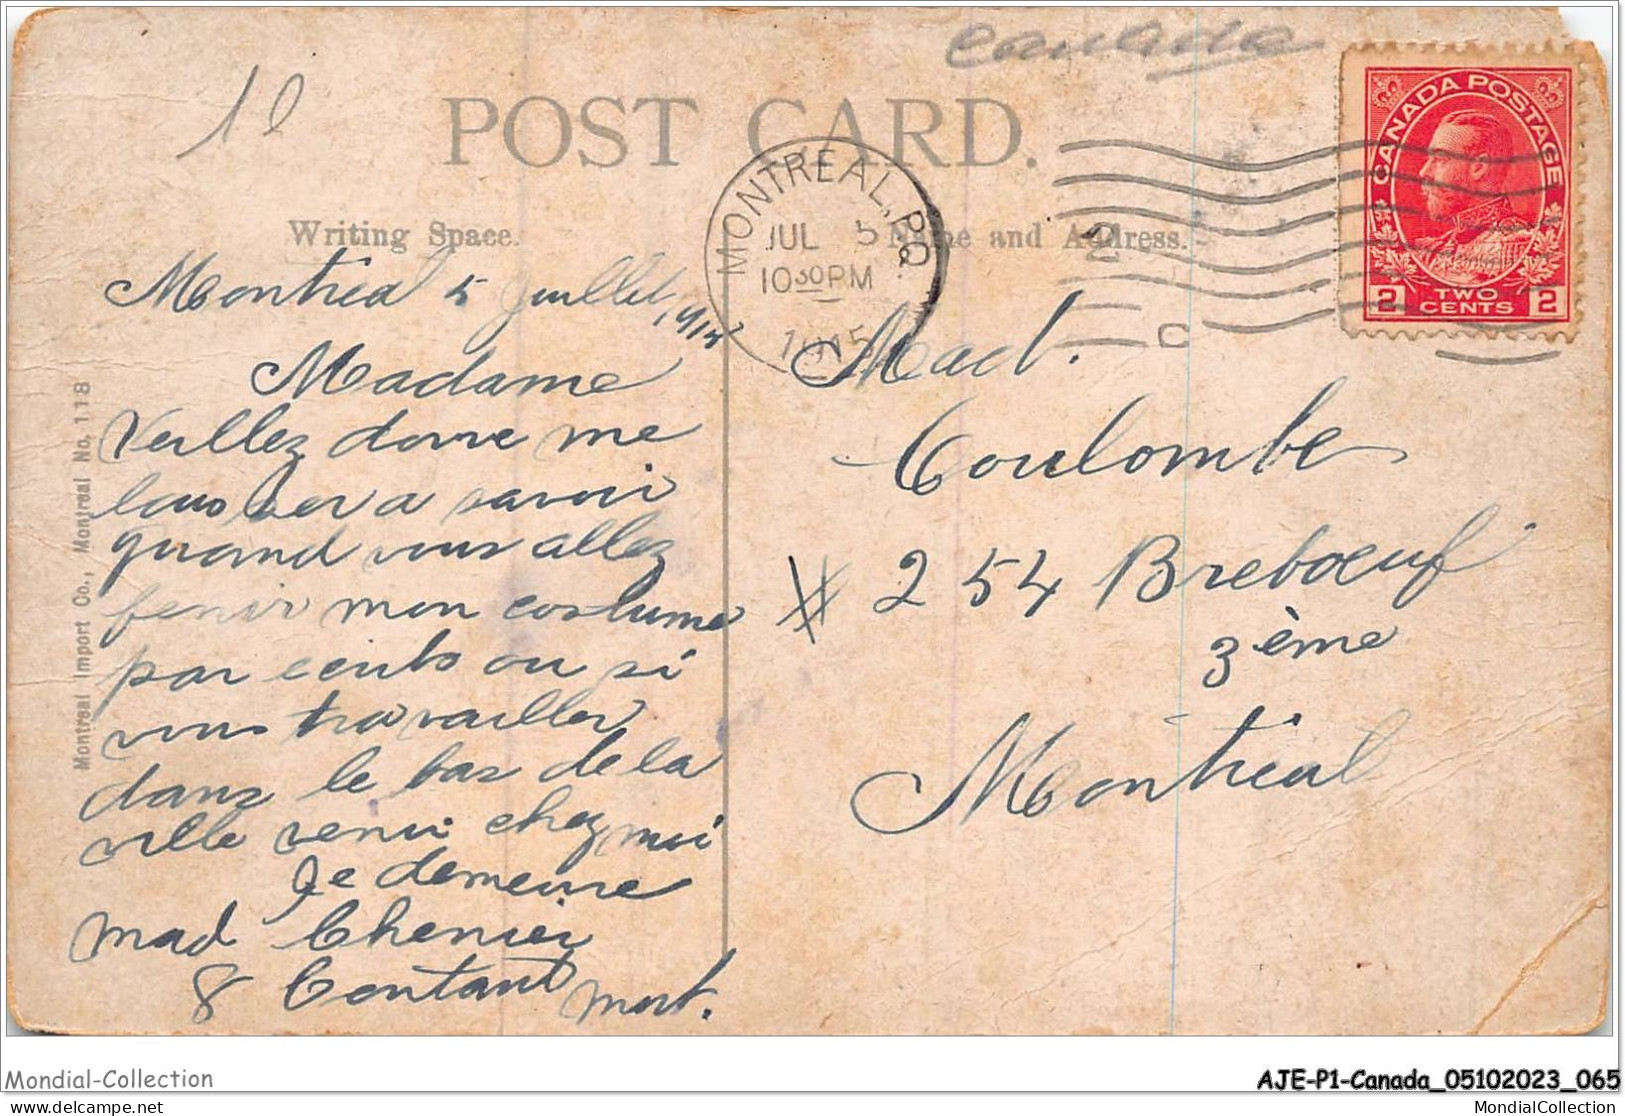 Canada
10
POST CARD.
CANADA POSTAGE
2 TWO CENTS 2
MONTREAL, P.Q.
JUL 5
10 30 PM
1915
C
Writing Space.
Name and Address.
Montréal 5 Juillet, 1915
Madame
Veillez donne me
laisser a savoir
quand vous allez
fenir mon costume
par ecrits ou si
vous travailler
dans le bas de la
ville venir chez moi
Je demeure
mad Chenier
8 Contant Mont.
Mad.
Coulombe
# 254 Breboeuf
3ème
Montréal
Montreal Import Co., Montreal No. 118
Mondial-Collection
AJE-P1-Canada_05102023_065
MondialCollection